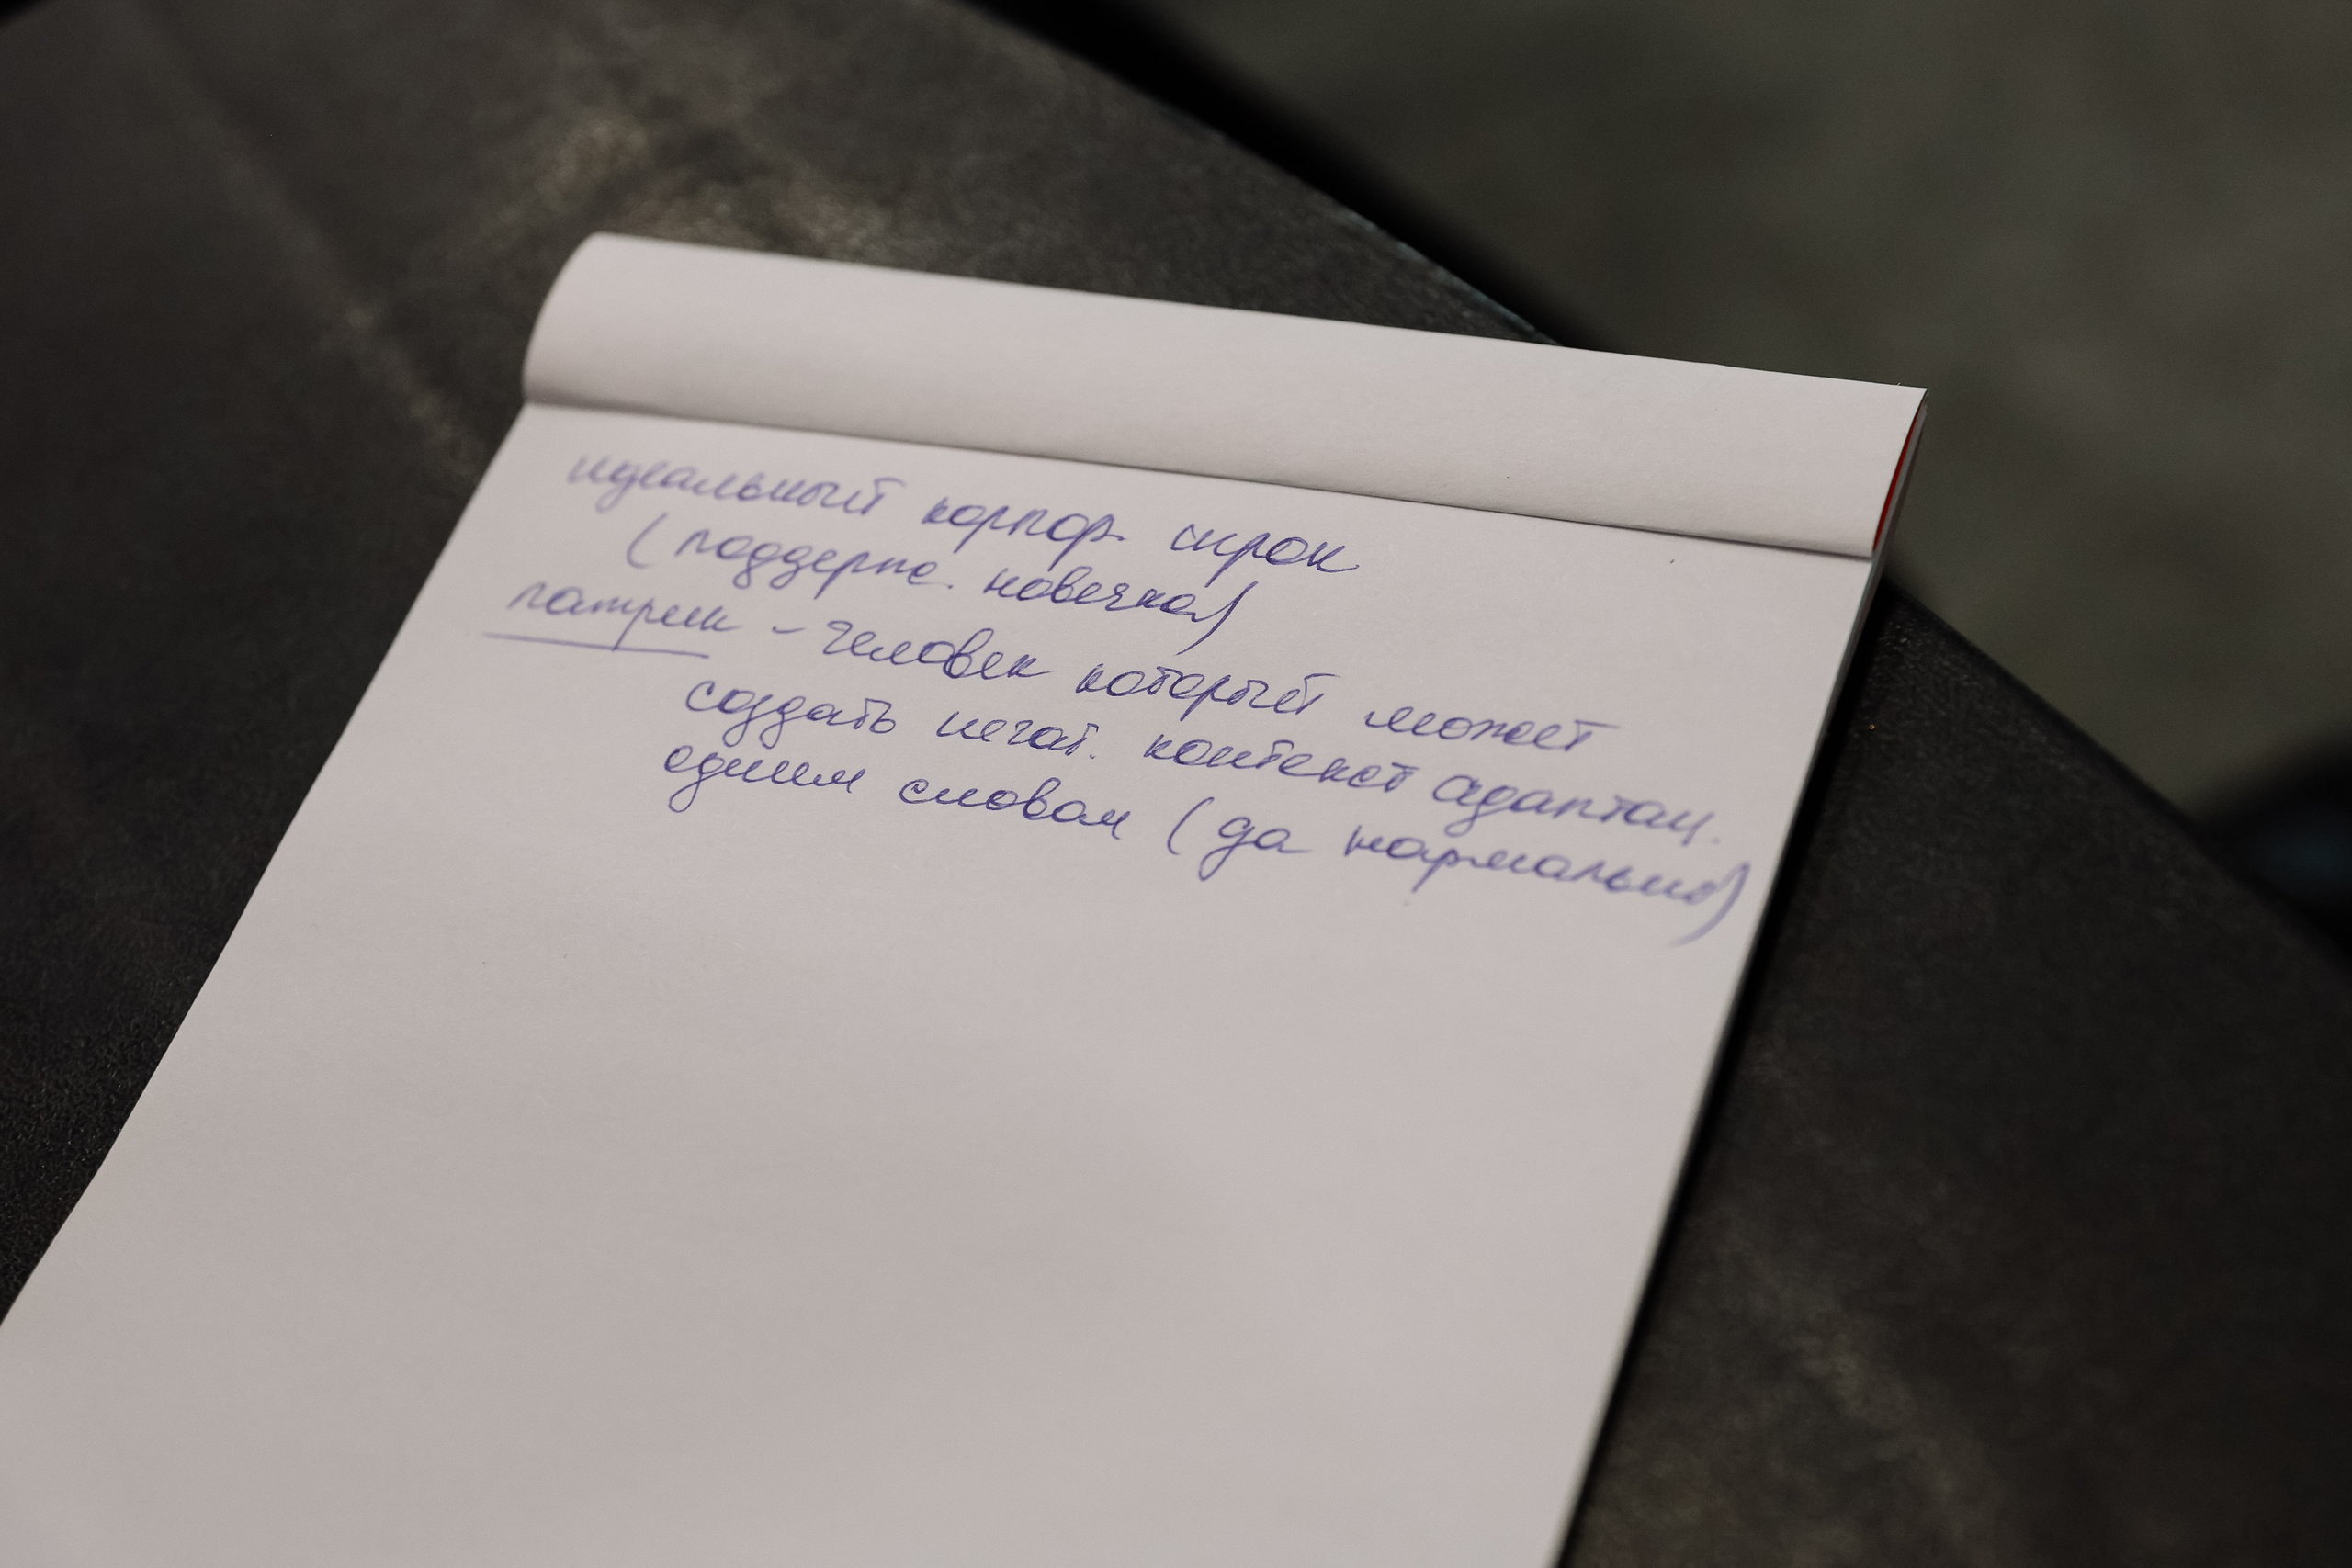 идеальный корпор. игрок
(поддерж. новечка)
патрик - человек который может
создать негат. контекст адаптац.
одним словом (да нормально)